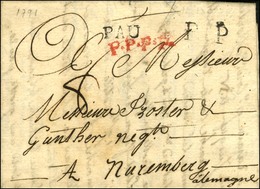 1791
PAU P P
P.P.P.P.
A Messieur
Messieurs Troster &
Gunther negts
A Nuremberg
allemagne